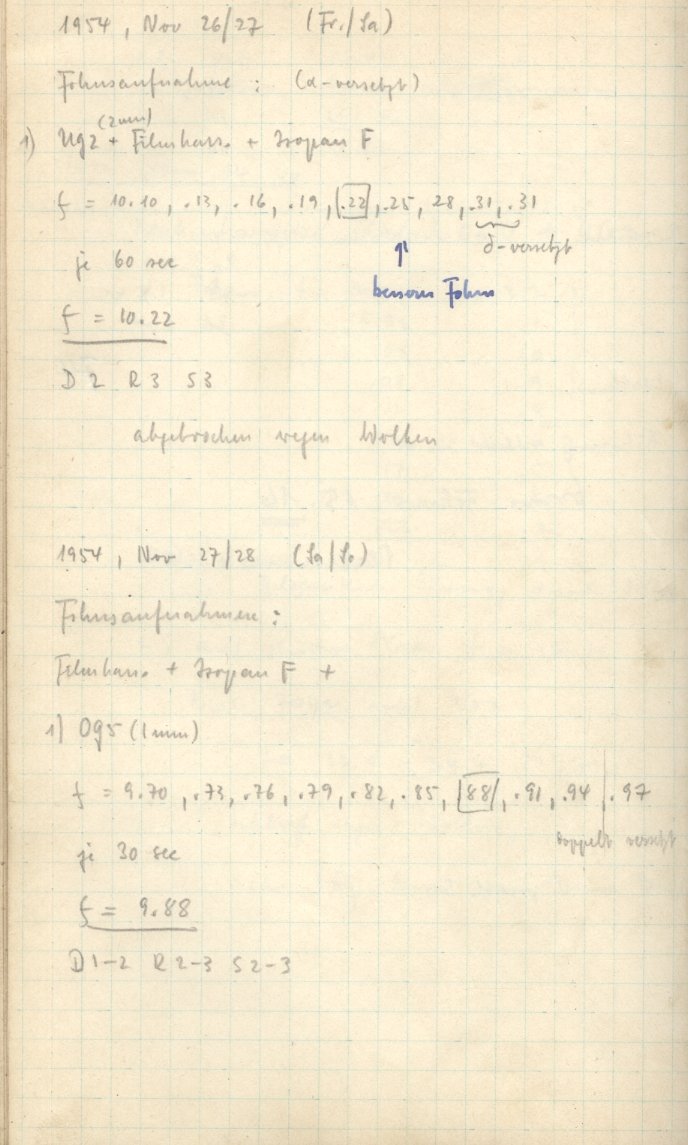 1954, Nov 26/27 (Fr./Sa)
Fokusaufnahme : (α-versetzt)
(2mm)
1) Ug2 + Filmkass. + Isopan F
f = 10.10, .13, .16, .19, .22, .25, 28, .31, .31
δ-versetzt
je 60 sec
besserer Fokus
f = 10.22
D 2 R 3 S3
abgebrochen wegen Wolken
1954, Nov 27/28 (Sa/So)
Fokusaufnahmen :
Filmkass. + Isopan F +
1) Og5 (1mm)
f = 9.70, .73, .76, .79, .82, .85, 88, .91, .94, .97
doppelt versetzt
je 30 sec
f = 9.88
D1-2 R2-3 S2-3